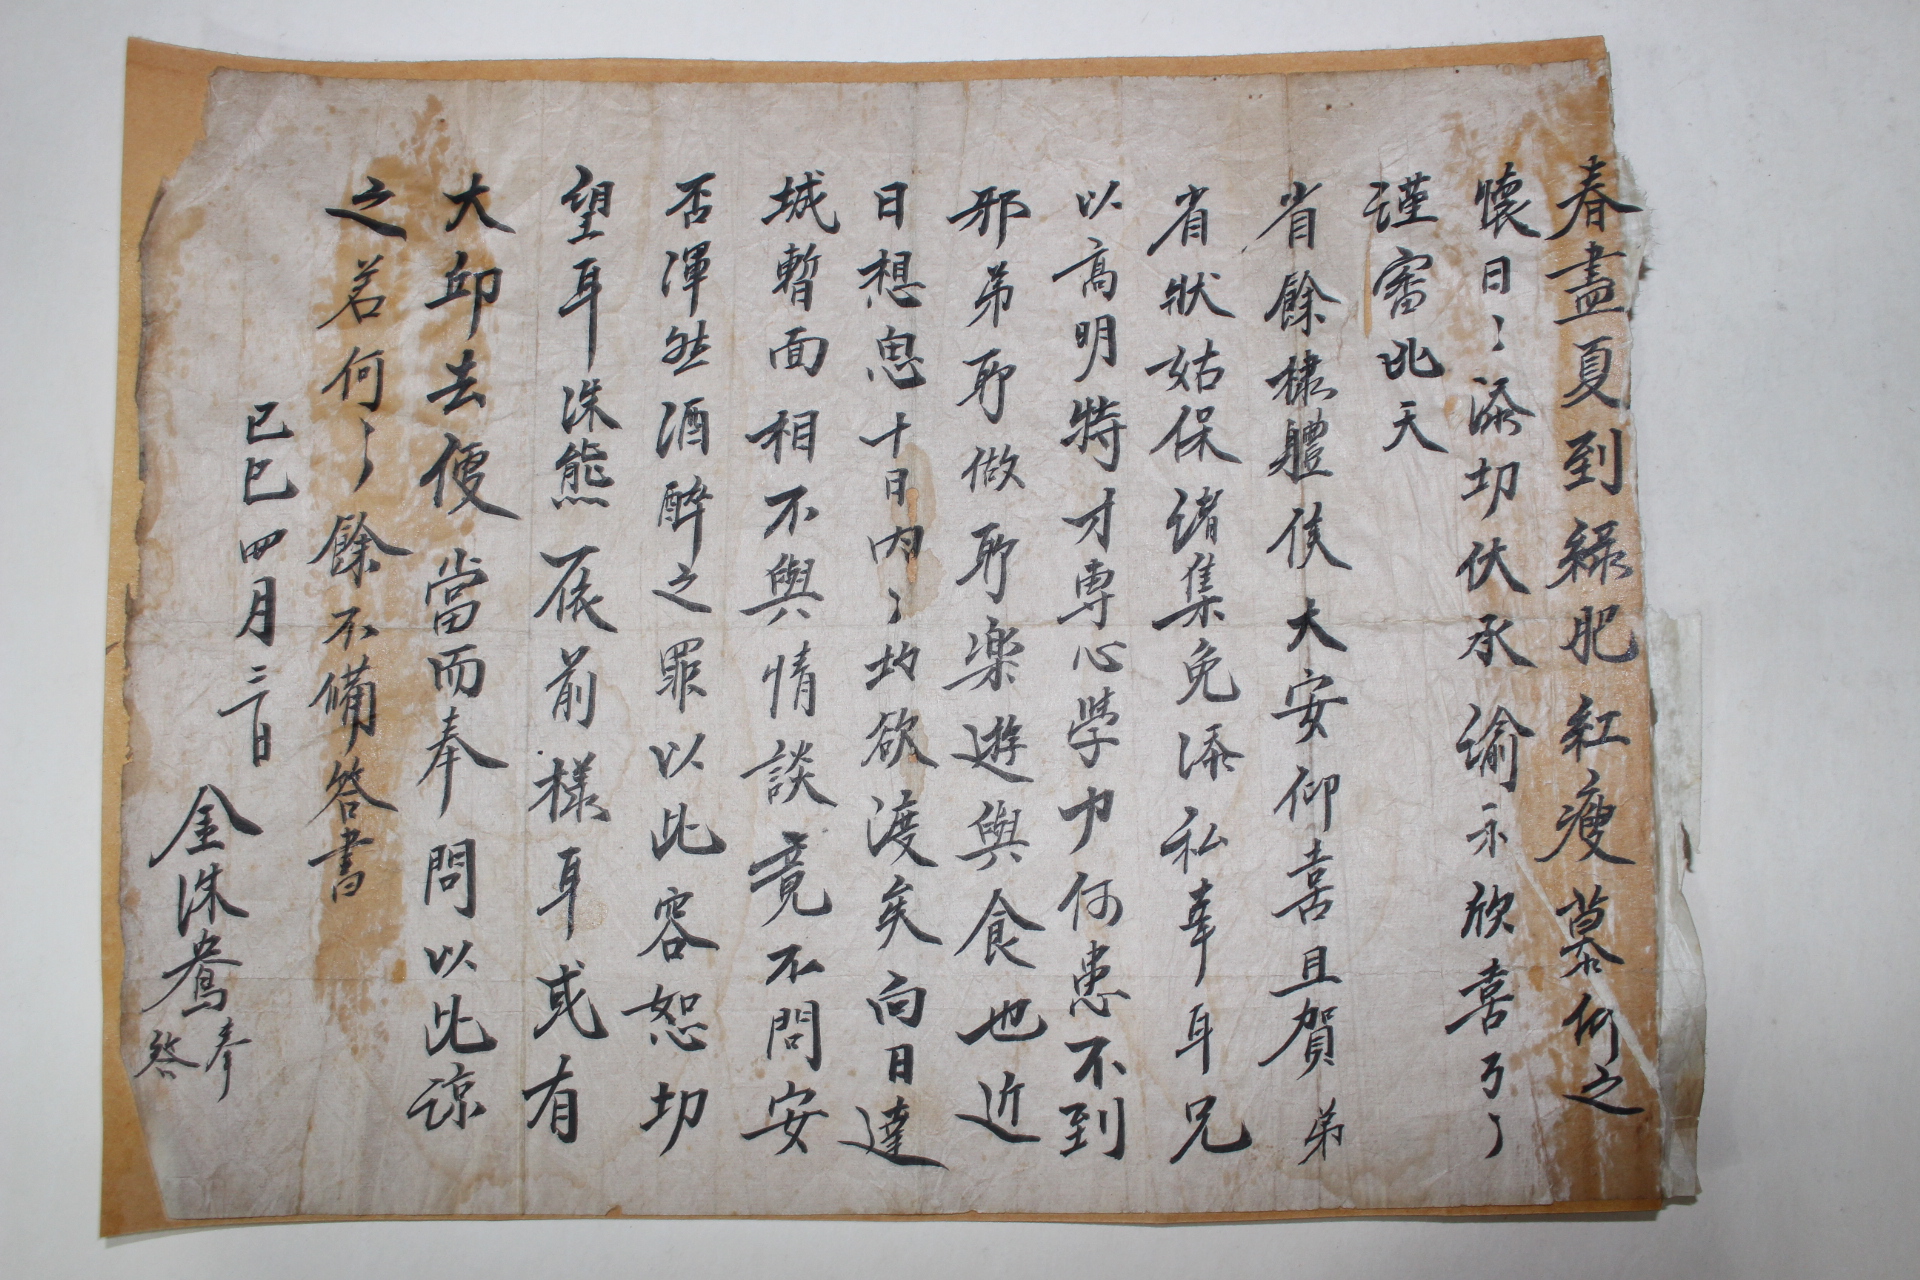 春盡夏到綠肥紅瘦慕仰之
懷日〻添切伏承諭示欣喜万〻
謹審此天
省餘棣體侯大安仰喜且賀 弟
省狀姑保諸集免添私幸耳兄
以高明特才專心學力何患不到
邪弟耶做耶樂遊與食也近
日想思十日內〻均欲渡矣向日達
城暫面相不與情談竟不問安
否渾然酒醉之罪以此容恕切
望耳洙熊 依前樣耳或有
大邱去便 當而奉問以此諒
之若何〻餘不備答書
己巳四月二十日
金洙鴦 奉答